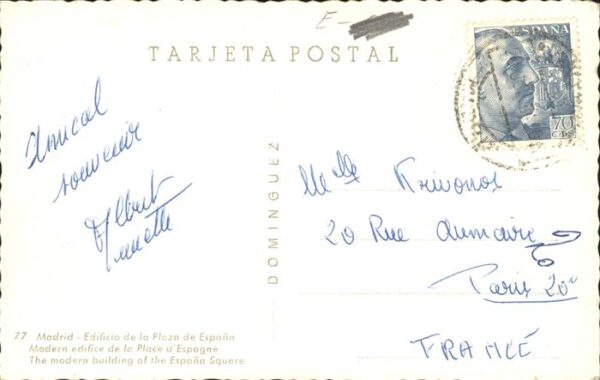 E-
TARJETA POSTAL
ESPAÑA
70
CTS
Amical
souvenir
Albert
DOMINGUEZ
Mlle Krivonos
20 Rue Dumaire
Paris 20e
FRANCE
77 Madrid - Edificio de la Plaza de España
Modern edifice de la Place d'Espagne
The modern building of the España Square